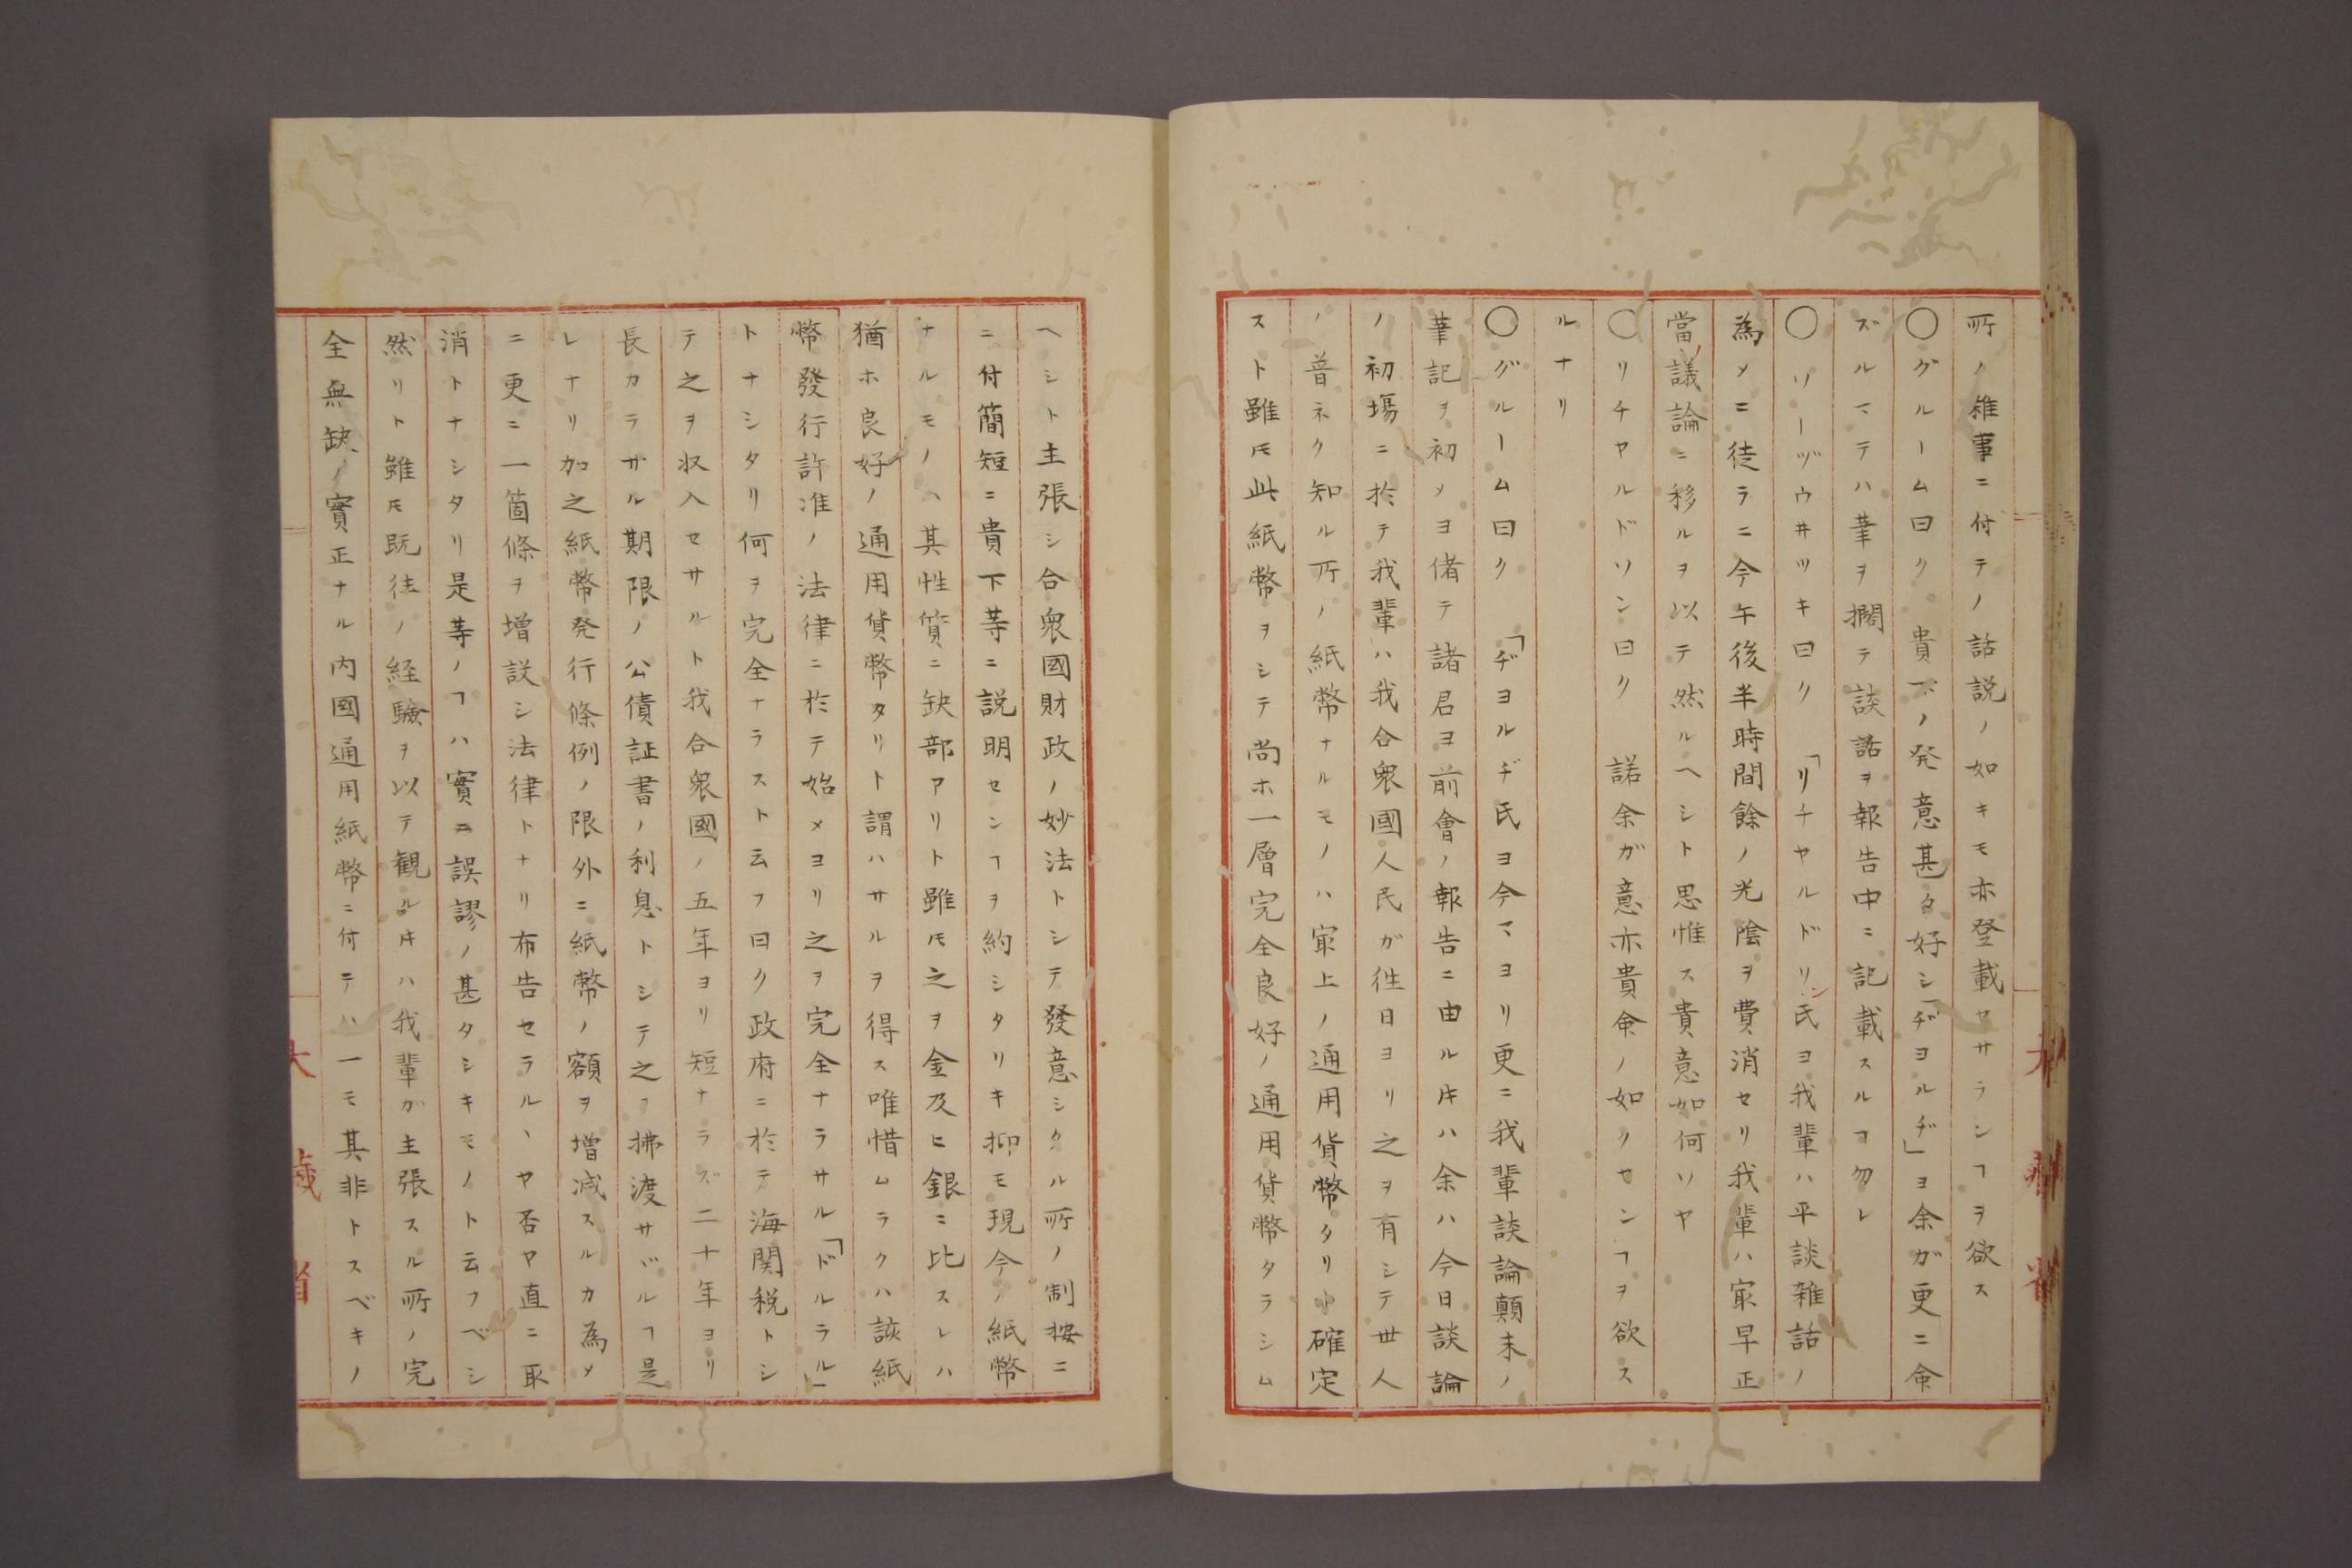 所ノ雑事ニ付テノ話説ノ如キモ亦登載セサランヿヲ欲ス
〇グルーム曰ク　貴下ノ発意甚タ好シ「ヂヨルヂ」ヨ余ガ更ニ命
ズルマテハ筆ヲ擱テ談話ヲ報告中ニ記載スルヿ勿レ
〇ソーヅウ井ツキ曰ク　「リチヤルドリン氏ヨ我輩ハ平談雑話ノ
為メニ徒ラニ今午後半時間餘ノ光陰ヲ費消セリ我輩ハ冣早正
當議論ニ移ルヲ以テ然ルヘシト思惟ス貴意如何ソヤ
〇リチヤルドソン曰ク　諾余ガ意亦貴命ノ如クセンヿヲ欲ス
ルナリ
〇グルーム曰ク　「ヂヨルヂ氏ヨ今マヨリ更ニ我輩談論顛末ノ
筆記ヲ初メヨ偖テ諸君ヨ前會ノ報告ニ由ル片ハ余ハ今日談論
ノ初塲ニ於テ我輩ハ我合衆國人民ガ徃日ヨリ之ヲ有シテ丗人
ノ普ネク知ル所ノ紙幣ナルモノハ冣上ノ通用貨幣タリト確定
スト雖𪜈此紙幣ヲシテ尚ホ一層完全良好ノ通用貨幣タラシム
ヘシト主張シ合衆國財政ノ妙法トシテ發意シタル所ノ制按ニ
ニ付簡短ニ貴下等ニ説明センヿヲ約シタリキ抑モ現今ノ紙幣
ナルモノハ其性質ニ缺部アリト雖𪜈之ヲ金及ヒ銀ニ比スレハ
猶ホ良好ノ通用貨幣タリト謂ハサルヲ得ス唯惜ムラクハ該紙
幣發行許准ノ法律ニ於テ始メヨリ之ヲ完全ナラサル「ドルラル」
トナシタリ何ヲ完全ナラスト云フ曰ク政府ニ於テ海関税トシ
テ之ヲ収入セサルト我合衆國ノ五年ヨリ短ナラズ二十年ヨリ
長カラザル期限ノ公債証書ノ利息トシテ之ヲ拂渡サヾルヿ是
レナリ加之紙幣発行條例ノ限外ニ紙幣ノ額ヲ増减スルカ為メ
ニ更ニ一箇條ヲ増設シ法律トナリ布告セラルヽヤ否ヤ直ニ取
消トナシタリ是等ノヿハ實ニ誤謬ノ甚タシキモノト云フベシ
然リト雖𪜈既往ノ経驗ヲ以テ観ル片ハ我輩ガ主張スル所ノ完
全無缺ノ實正ナル内國通用紙幣ニ付テハ一モ其非トスベキノ
大蔵省